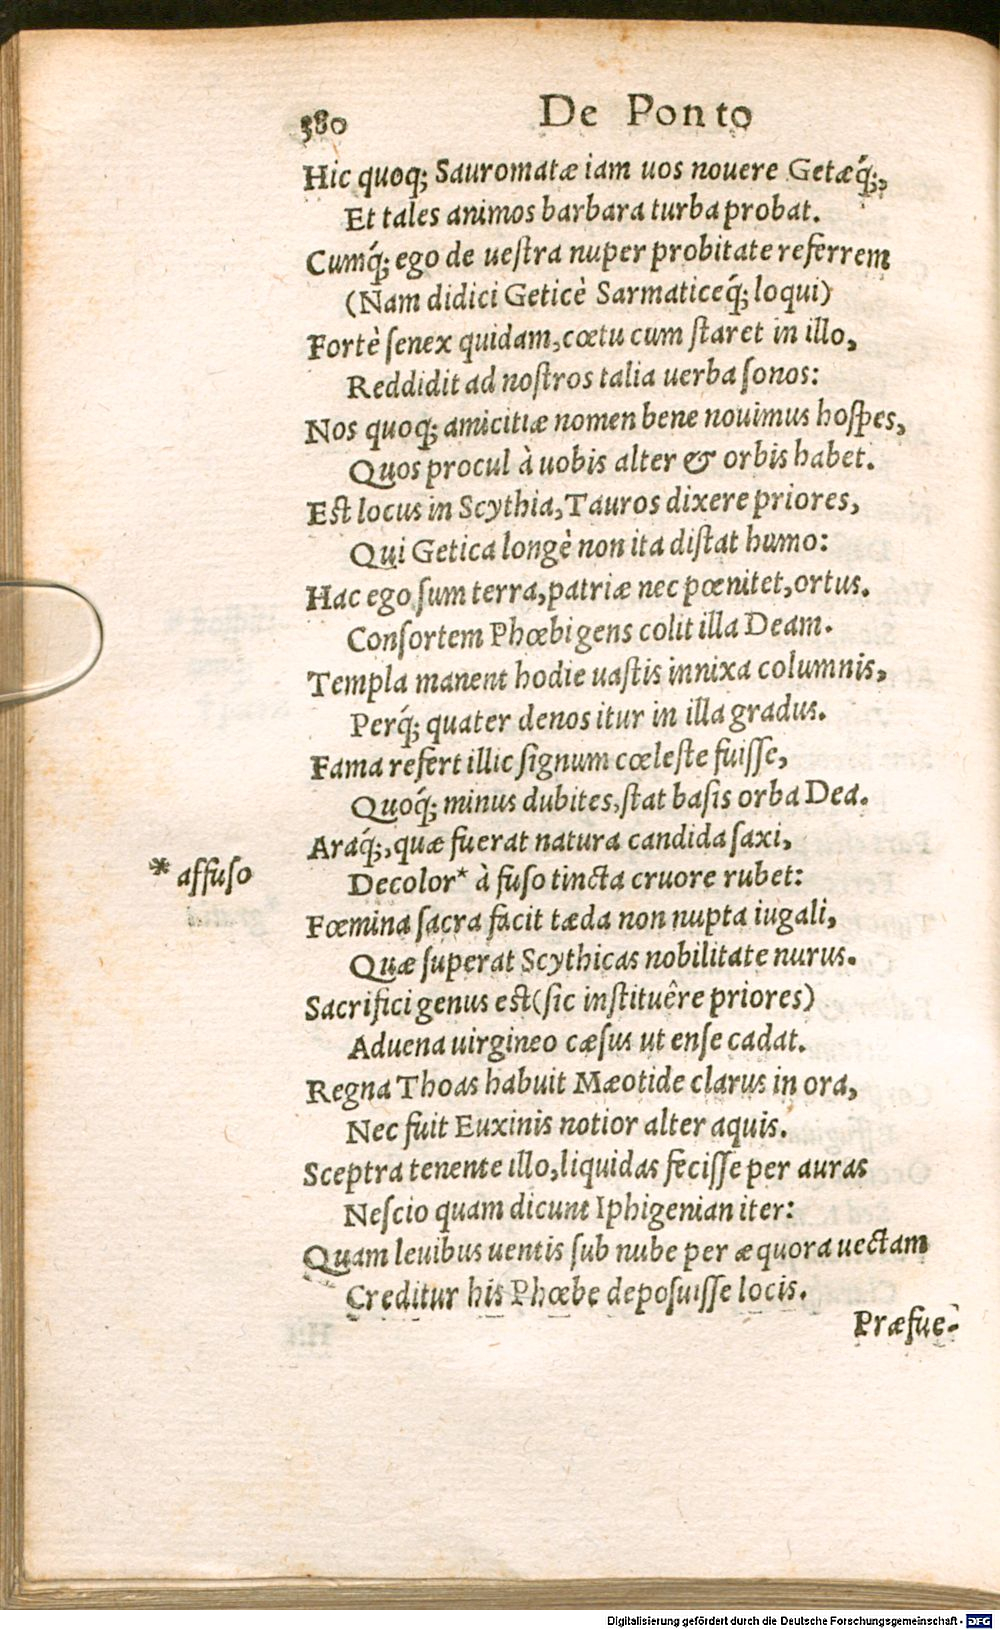 380 De Ponto
Hic quoq; Sauromatæ iam uos nouere Getæq́;,
Et tales animos barbara turba probat.
Cumq́; ego de ueſtra nuper probitate referrem
(Nam didici Geticè Sarmaticeq́; loqui)
Fortè ſenex quidam, cœtu cum ſtaret in illo,
Reddidit ad noſtros talia uerba ſonos:
Nos quoq; amicitiæ nomen bene nouimus hoſpes,
Quos procul à uobis alter & orbis habet.
Eſt locus in Scythia, Tauros dixere priores,
Qui Getica longè non ita diſtat humo:
Hac ego ſum terra, patriæ nec pœnitet, ortus.
Conſortem Phœbi gens colit illa Deam.
Templa manent hodie uaſtis innixa columnis,
Perq́; quater denos itur in illa gradus.
Fama refert illic ſignum cœleſte fuiſſe,
Quoq́; minus dubites, ſtat baſis orba Dea.
Araq́;, quæ fuerat natura candida ſaxi,
* affuſo
Decolor* à fuſo tincta cruore rubet:
Fœmina ſacra facit tæda non nupta iugali,
Quæ ſuperat Scythicas nobilitate nurus.
Sacrifici genus eſt (ſic inſtituêre priores)
Aduena uirgineo cæſus ut enſe cadat.
Regna Thoas habuit Mæotide clarus in ora,
Nec fuit Euxinis notior alter aquis.
Sceptra tenente illo, liquidas feciſſe per auras
Neſcio quam dicunt Iphigenian iter:
Quam leuibus uentis ſub nube per æquora uectam
Creditur his Phœbe depoſuiſſe locis.
Præfue-
Digitalisierung gefördert durch die Deutsche Forschungsgemeinschaft - DFG